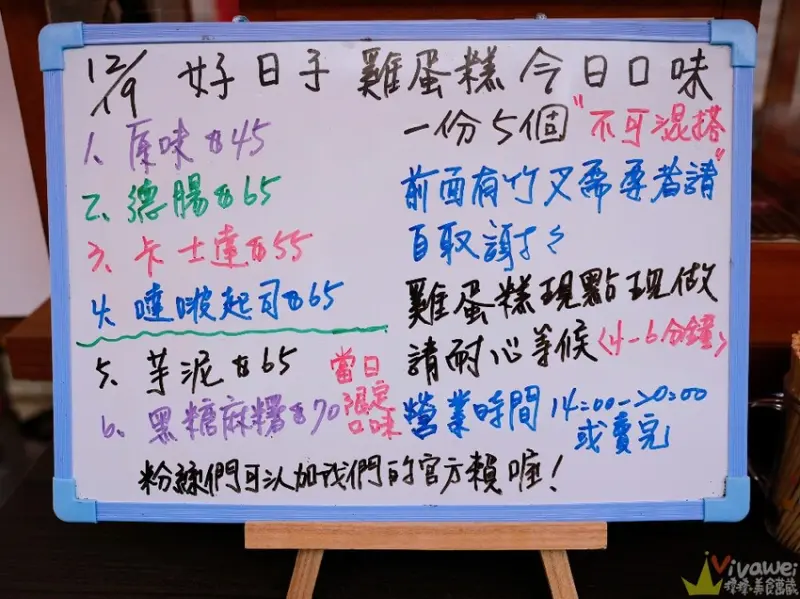 12/19 好日子 雞蛋糕 今日口味
1、原味$45
2、德腸$65
3、卡士達$55
4、噠啵起司$65
5、芋泥$65
6、黑糖麻糬$70
當日
限定
口味
一份5個"不可混搭"
前面有竹叉需要者請
自取謝謝
雞蛋糕現點現做
請耐心等候<4-6分鐘>
營業時間 14:00->20:00
或賣完
粉絲們可以加我們的官方賴喔!
Vivawei
美食萬歲